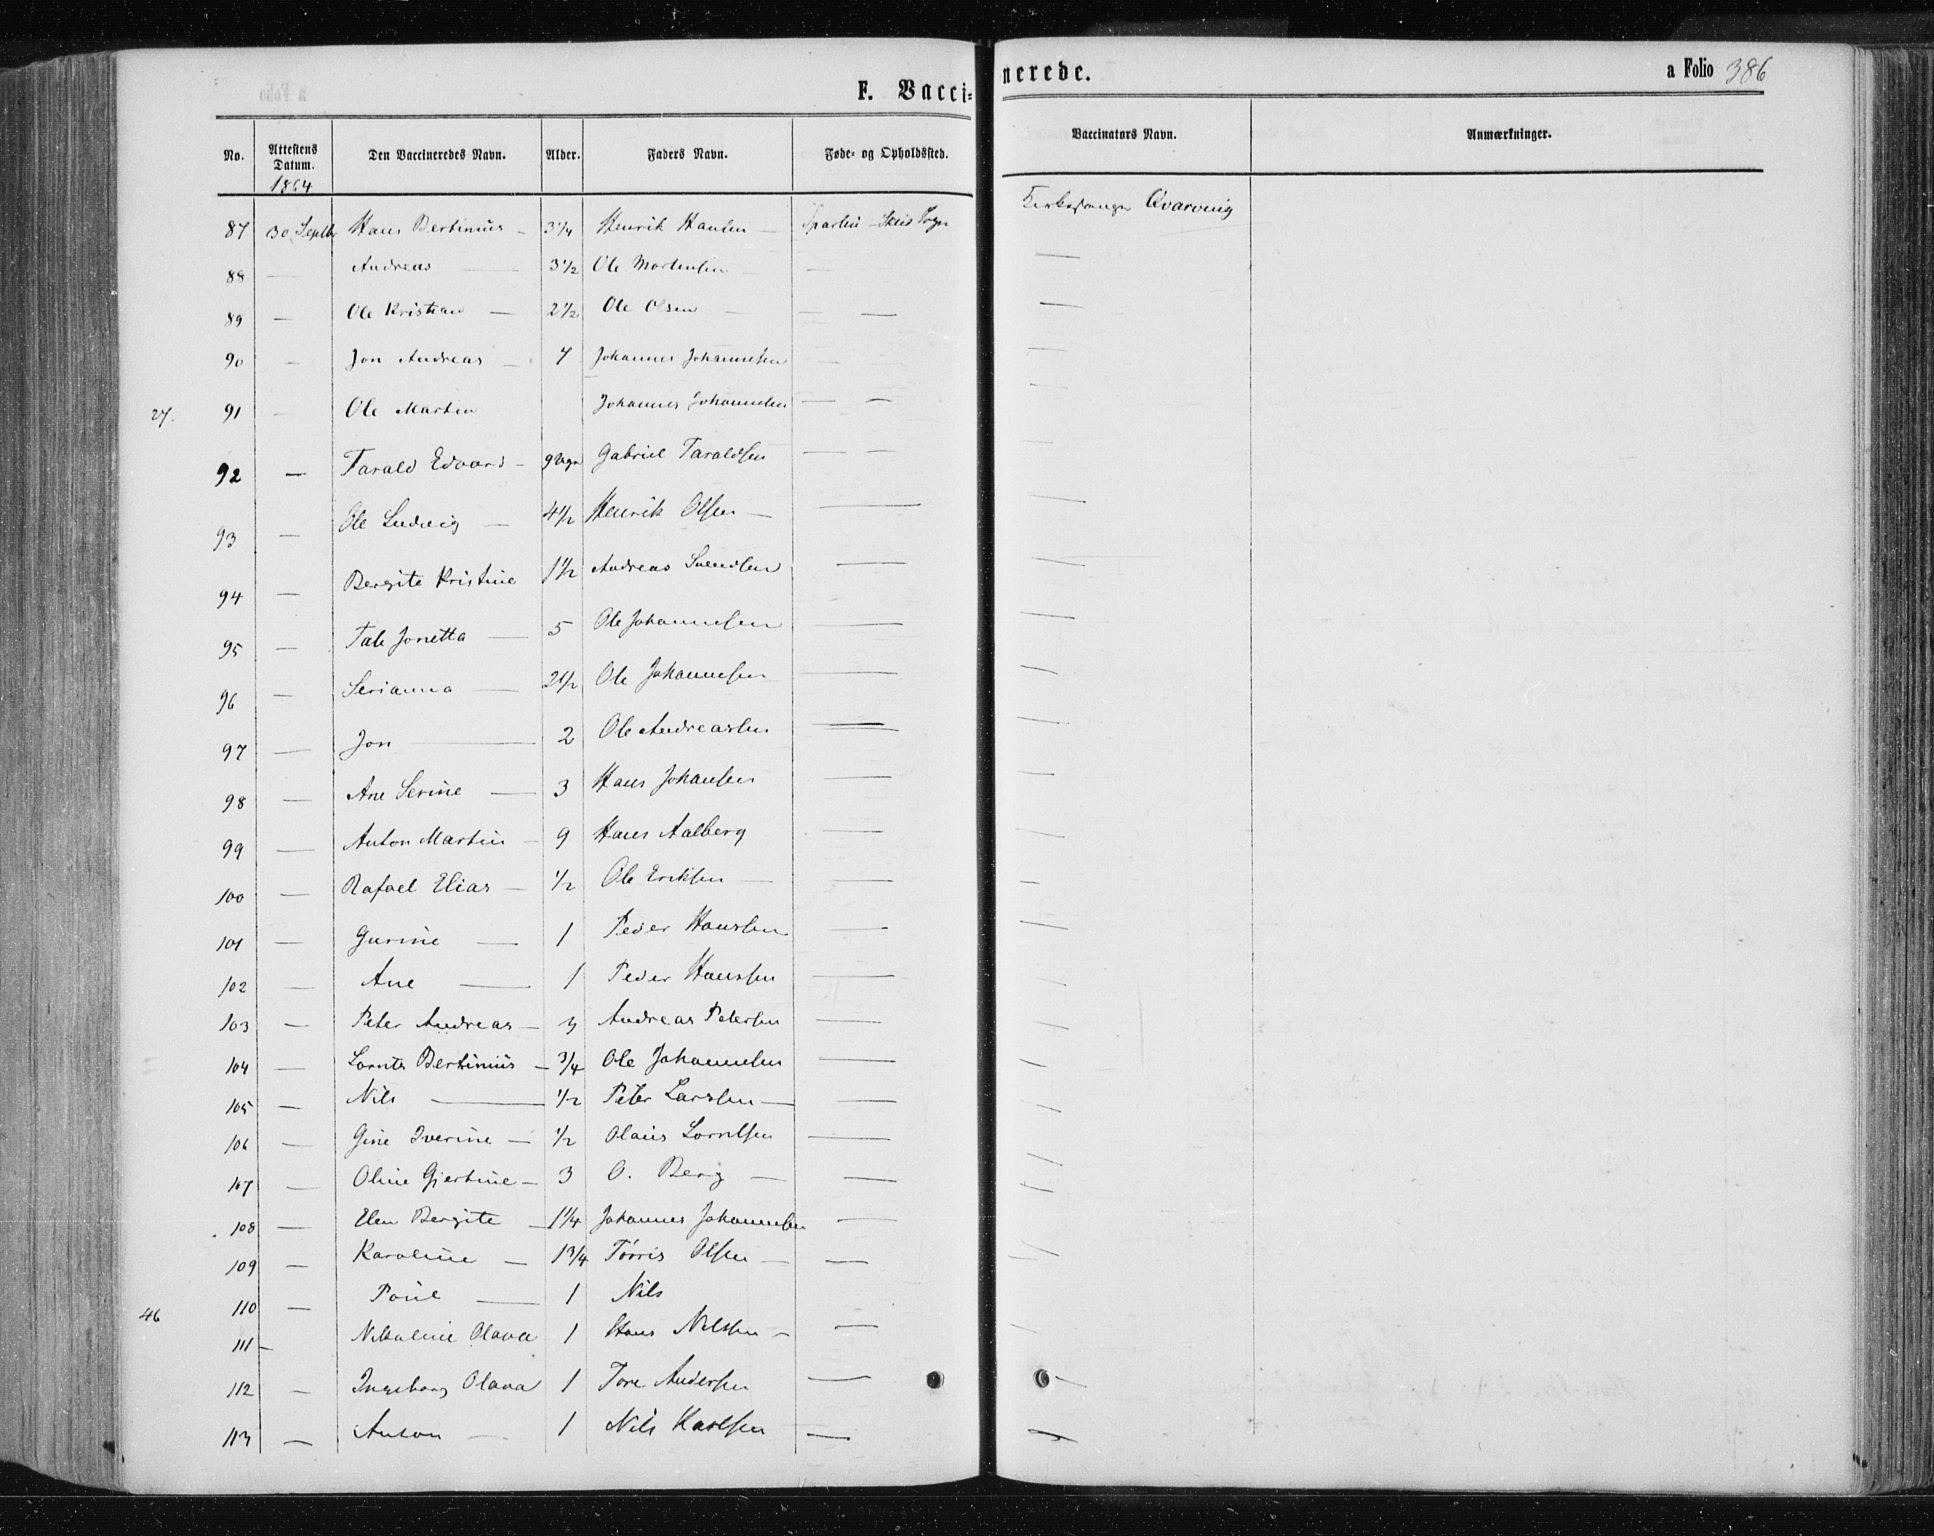 F. Vaccinerede. a Folio 386
No. Attestens Datum. Den Vaccineredes Navn. Alder. Faders Navn. Føde- og Opholdssted. Vaccinators Navn. Anmærkninger.
1864
87 30 Septbr Hans Bertinius - 3 1/4 Henrik Hansen — Sparbu - Skeis Sogn Kirkesanger Qvarving
88 — Andreas — 3 1/2 Ole Mortensen — — —
89 — Ole Kristian — 2 1/2 Ole Olsen — — — —
90 — Jon Andreas - 7 Johannes Johannesen — —
27. 91 — Ole Martin Johannes Johannesen — — —
92 — Tarald Edvard - 9 Ugr Gabriel Taraldsen — — —
93 — Ole Ludvig — 4 1/2 Henrik Olsen — — —
94 — Bergite Kristine 1 1/2 Andreas Svendsen — —
95 — Tale Jonetta — 5 Ole Johannesen — —
96 — Serianna — 2 1/2 Ole Johannesen — —
97 — Jon — 2 Ole Andreassen — —
98 — Ane Serine — 3 Hans Johansen — —
99 — Anton Martin - 9 Hans Aalberg — —
100 — Rafael Elias — 1/2 Ole Eriksen — — —
101 — Gurine — 1 Peder Hanssen — —
102 — Ane — 1 Peder Hanssen — —
103 — Peter Andreas — 3 Andreas Petersen — —
104 — Lornts Bertinius — 3/4 Ole Johannesen — —
105 — Nils — 1/2 Peter Larssen — — —
106 — Gine Iverine — 1/2 Olaus Lorntsen — —
107 — Oline Gjertine — 3 O. Berg — — —
108 — Elen Bergite — 1 1/4 Johannes Johannesen — —
109 — Karoline — 1 3/4 Tørris Olsen — — —
46 110 — Poul — 1 Nils
111 - Nikoline Olava 1 Hans Nilssen - — —
112 — Ingeborg Olava 1 Tore Andersen — —
113 — Anton — 1 Nils Karlsen — —